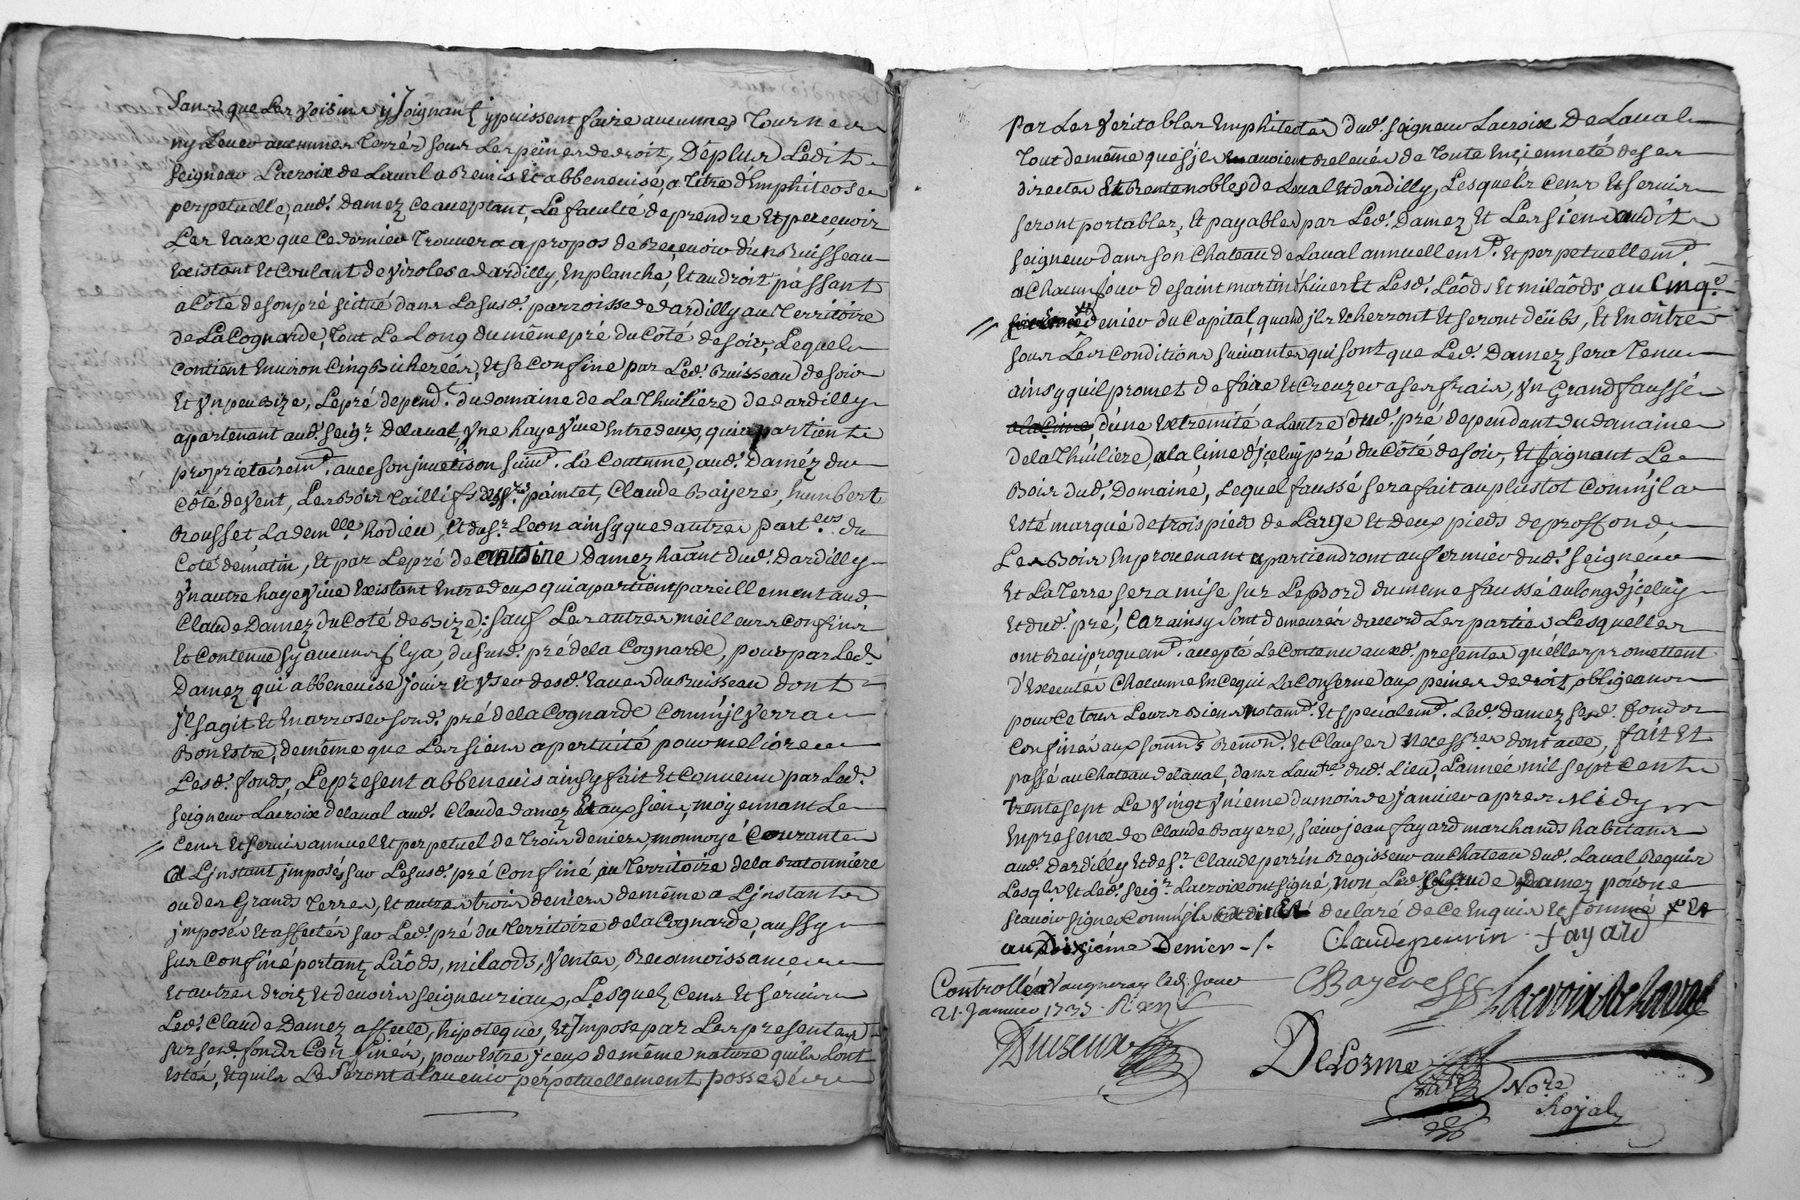 Sans que Les Voisins y Joignant y puissent faire aucunnes Tournes
ny Lever aucunnes Terres sous Les peines de droit, Déplus Ledit
Seigneur Lacroix de Laval a Remis Et abbenevisé, a titre d'Emphiteose
perpetuelle, aud. Damez ce acceptant, La faculté de prendre Et percevoir
Les Eaux que ce dernier Trouvera a propos de Recevoir d'un Ruisseau
Existant Et Coulant de Viroles a dardilly, En planche, Et audroit passant
a Côté de son pré situé dans La susd. parroisse de dardilly au Territoire
de La Cognarde, Tout Le Long du même pré du Côté de soir, Lequel
contient Environ Cinq Bicherées, Et se Confine par Led. Ruisseau de soir
Et Un peu Bize, Le pré depend.t du domaine de La Thuiliere de dardilly
apartenant aud. Seig.r de laval, Une haye Vive Entre deux, qui apartient
proprietairem.t avec son jnvetison suiv.t La Coutume, aud. Damez du
Côté de Vent, Les Bois Taillifs des S.rs paintet, Claude Bayere, humbert
Rousset La dem.elle hodieu, Et du S.r Leon ainsy que d'autres part.ers du
Coté de matin, Et par Le pré de antoine Damez hâant dud. Dardilly
Un autre haye Vive Existant Entre deux qui apartient pareillement aud.
Claude Damez du Coté de Bize, sauf Les autres meilleurs confins
Et Contenue sy aucuns jl y a, du susd. pré de la Cognarde, pour par Led.
Damez qui abbenevise jouir Et User desd. Eaues du Ruisseau dont
jl s'agit Et En arroser sond. pré de la Cognarde comm'jl Verra
Bon Estre, de même que Les siens a pertuité pour meliorer
Lesd. fonds, Le present abbenevis ainsy fait Et Convenu par Led.
Seigneur Lacroix de laval aud. Claude damez Et aux siens, moyennant Le
Cens Et servis annuel Et perpetuel de Trois deniers monnoye Courante
a L'jnstant jmposés sur Le susd. pré Confiné au Territoire de la Ratonniere
ou des Grands Terres, Et autres trois deniers de même a L'jnstant
jmposés Et affectés sur Led. pré du Territoire de la Cognarde, aussy
sur Confiné portant Laods, milaods, Ventes, Reconnoissances
Et autres droits Et devoirs Seigneuriaux, Lesquels Cens Et servis
Led. Claude Damez affecte, hipoteque, Et Jmpose par Les presentes
sur sesd. fonds Confinés, pour Estre jceux de même nature qu'ils L'ont
Estés, Et qu'ils Le seront a L'avenir perpetuellement possedés
par Les Veritables Emphiteotes dud. Seigneur Lacroix De Laval
Tout de même que s'jls En avoient Relevés de Toute Encienneté de ses
directes Et Rente nobles de Laval Et dardilly, Lesquels Cens Et servis
seront portables, Et payables par Led. Damez Et Les siens audit
Seigneur dans son Chateau de Laval annuellem.t Et perpetuellem.t
a Chacun jour de saint martin d'hivert Et Lesd. Laôds Et milaôds au Cinq.e
denier du Capital, quand jls Echerront Et seront dëübs, Et En oûtre
sous Les Conditions suivantes qui sont que Led. Damez sera Tenu
ainsy qu'il promet de faire Et Creuzer a ses frais, Un Grand faussé
a la Cime d'une Extremité a L'autre dud. pré dependant du domaine
de la Thuiliere, a la Cime d'jceluy pré du Côté de soir, Et Joignant Le
Bois dud. Domaine, Lequel faussé sera fait au plustot Comm'jl a
Esté marqué de trois pieds de Large Et deux pieds de proffond
Les Bois En provenant apartiendront au fermier dud. Seigneur
Et La Terre sera mise sur Le Bord du meme faussé au long d'jceluy
Et dud. pré, Car ainsy sont demeurés d'accord Les parties Lesquelles
ont Reciproquem.t accepté Le Contenu auxd. presentes qu'elles promettent
d'Executer Chacunne En ce qui La Conserne aux peines de droit obligeant
pour ce tous Leurs Biens Notam.t Et specialem.t Led. Damez sesd. fonds
Confinés aux soumis.s Renon.s Et Clauses Necess.res dont acte, fait Et
passé au Chateau de laval, dans L'autre dud. Lieu, L'année mil sept cent
Trente sept Le Vingt Unieme du mois de Janvier apres Midy
En presence de Claude Bayere, sieur jean fayard marchands habitans
aud. Dardilly Et de S.r Claude perrin Regisseur au Chateau dud. Laval Requis
Lesq.ls Et Led. Seig.r Lacroix ont signé, non Led. Claude Damez pour ne
sçavoir signer Comm'jl a declaré de ce Enquis Et sommé, Et
au Dixiéme Denier
Claude perrin fayard
Controllé a Vaugneray led. Jour CBayere Lacroix de laval
21. Janvier 1737.
Duizeux
Delorme No.re
Royal